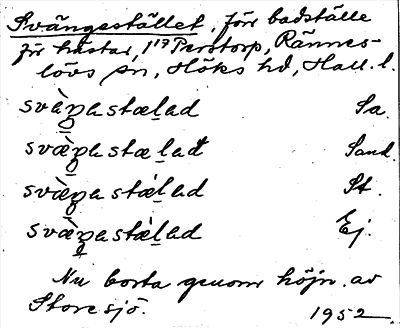 Svängestället, förr badställe
för hästar, 1¹⁷ Perstorp, Rännes-
lövs sn, Höks hd, Hall. l.
svæ̀ŋastæḷad Sa.
svæ̀ŋastæḷad Sand.
svæ̀ŋastæ̀ḷad St.
svæ̀ŋastæ̀ḷad Ej.
Nu borta genom höjn. av
Store sjö. 1952.